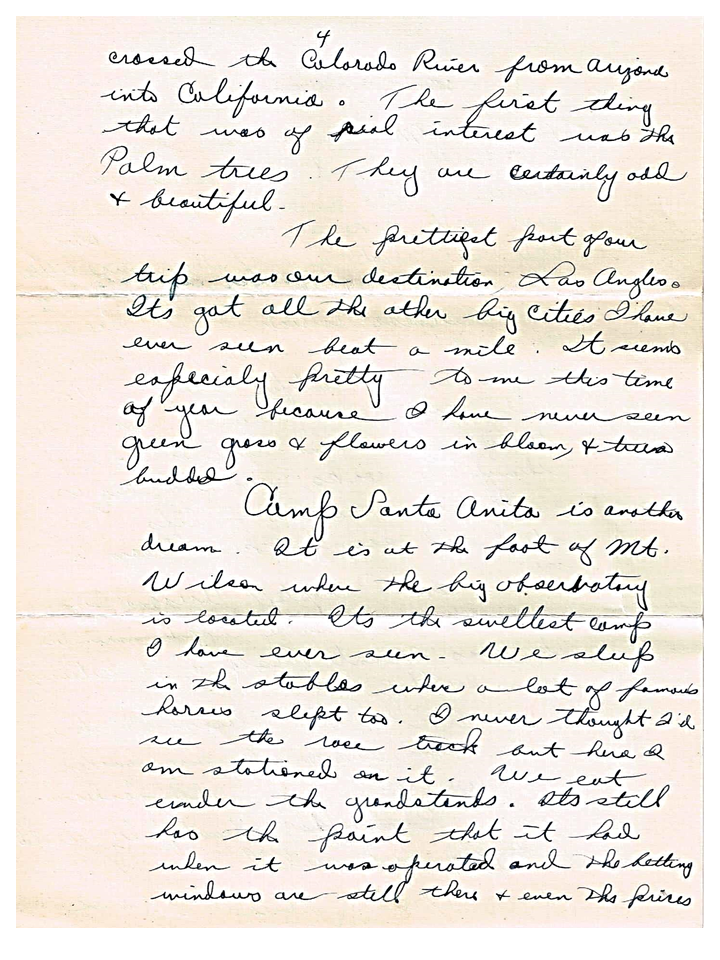 4
crossed the Colorado River from Arizona
into California. The first thing
that was of real interest was the
Palm trees. They are certainly odd
& beautiful.
The prettiest part of our
trip was our destination, Los Angles.
Its got all the other big cities I have
ever seen beat a mile. It seems
especialy pretty to me this time
of year because I have never seen
green grass & flowers in bloom, & trees
budded.
Camp Santa Anita is another
dream. It is at the foot of Mt.
Wilson where the big observatory
is located. Its the swellest camp
I have ever seen. We sleep
in the stables where a lot of famous
horses slept too. I never thought I'd
see the race track but here I
am stationed on it. We eat
under the grandstands. Its still
has the paint that it had
when it was operated and the betting
windows are still there & even the prices